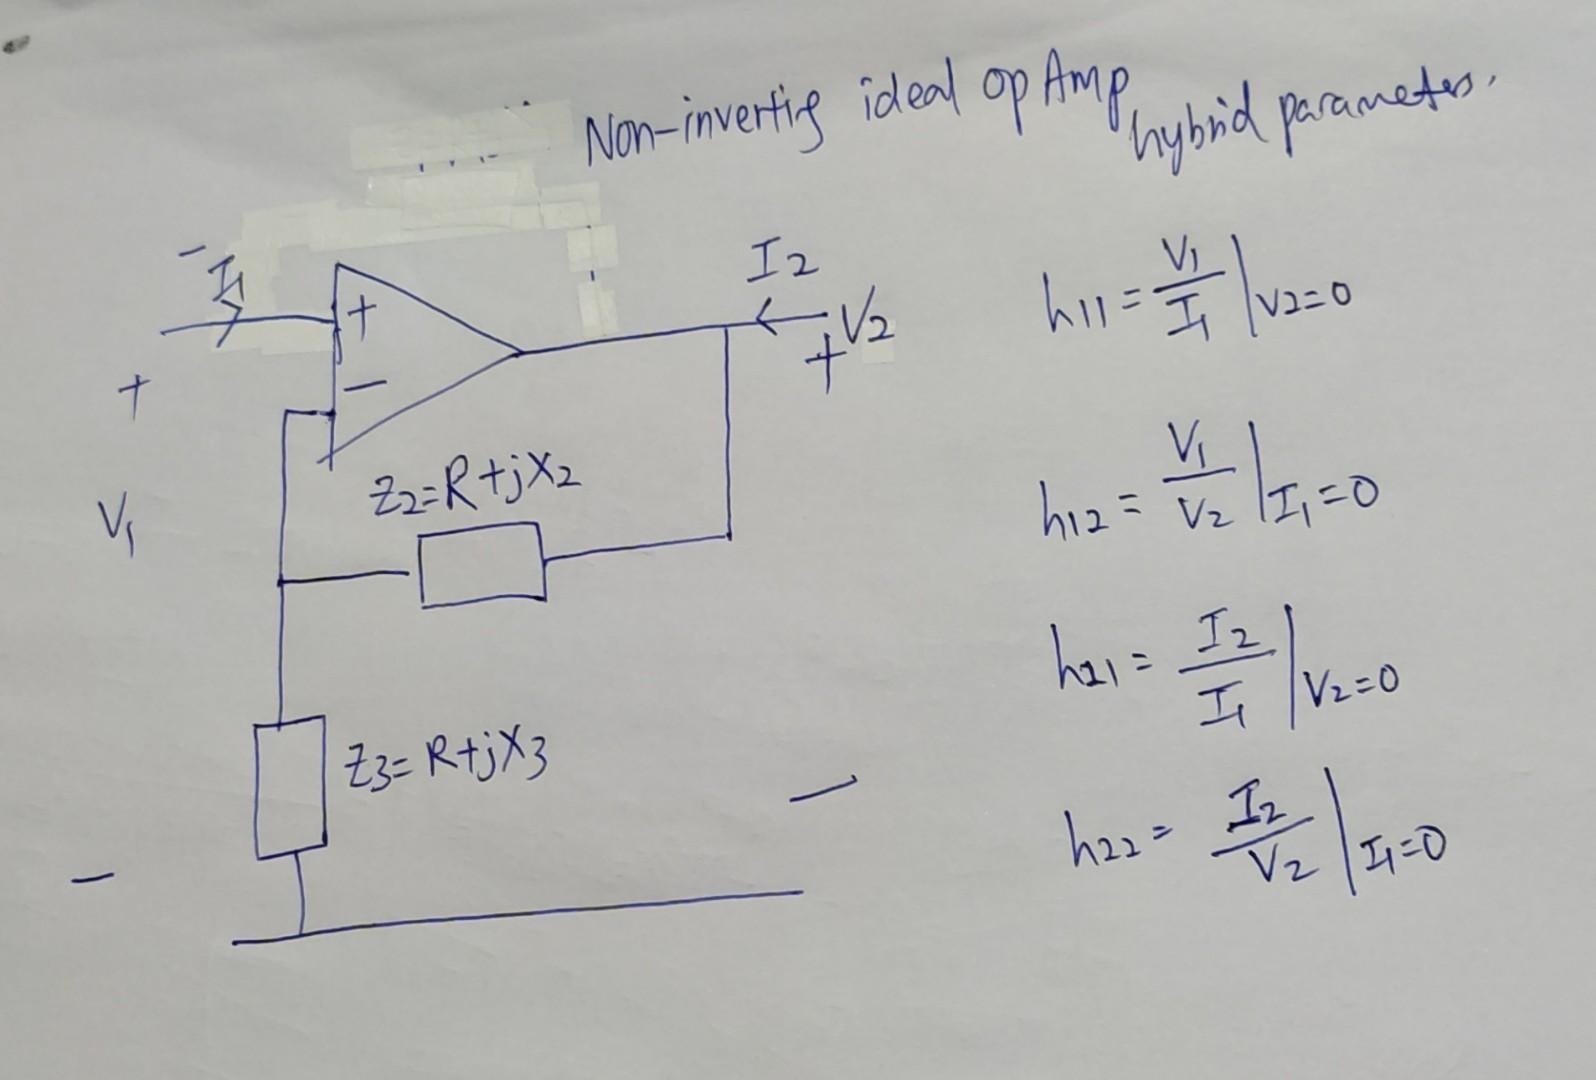 Non-invertig ideal op Amp hybrid parameters.
I1
I2
+
+
-
V2
+
-
V1
Z2=R+jX2
Z3=R+jX3
-
-
h11 = V1/I1 | V2=0
h12 = V1/V2 | I1=0
h21 = I2/I1 | V2=0
h22 = I2/V2 | I1=0